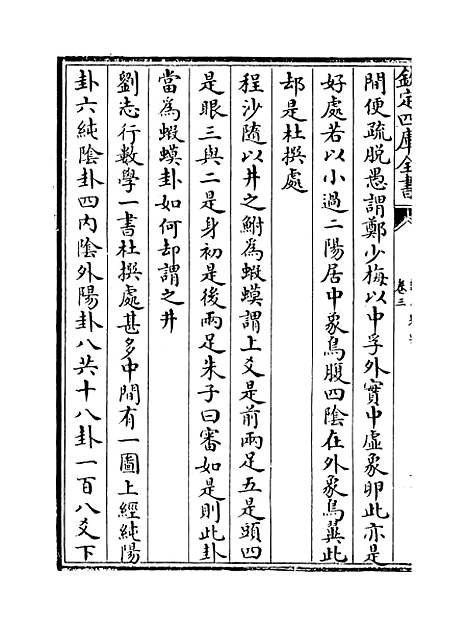 欽定四庫全書
卷三
間便疏脫愚謂鄭少梅以中孚外實中虛象卵此亦是
好處若以小過二陽居中象鳥腹四陰在外象鳥翼此
却是杜撰處
程沙隨以井之鮒為蝦蟆謂上爻是前兩足五是頭四
是眼三與二是身初是後兩足朱子曰審如是則此卦
當為蝦蟆卦如何却謂之井
劉志行數學一書杜撰處甚多中間有一圖上經純陽
卦六純陰卦四内陰外陽卦八共十八卦一百八爻下